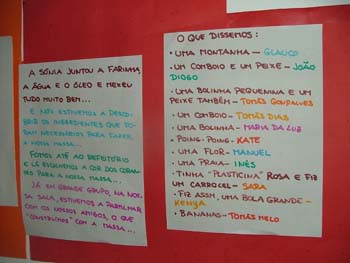 A SÓNIA JUNTOU A FARINHA,
A ÁGUA E O ÓLEO E MEXEU
TUDO MUITO BEM...
E NÓS ESTIVEMOS A DESCO-
BRIR OS INGREDIENTES QUE FO-
RAM NECESSÁRIOS PARA FAZER
A NOSSA MASSA...
FOMOS ATÉ AO REFEITÓRIO
E LÁ ESCOLHEMOS A COR DOS CORAN-
TES PARA A NOSSA MASSA...
JÁ EM GRANDE GRUPO, NA NOS-
SA SALA, ESTIVEMOS A PARTILHAR
COM OS NOSSOS AMIGOS, O QUE
"CONSTRUÍMOS" COM A MASSA...
O QUE DISSEMOS:
• UMA MONTANHA - GLAUCO
• UM COMBOIO E UM PEIXE - JOÃO
DIOGO
• UMA BOLINHA PEQUENINA E UM
PEIXE TAMBÉM - TOMÁS GONÇALVES
• UM COMBOIO - TOMÁS DIAS
• UMA BOLINHA - MARIA DA LUZ
• POING-POING - KATE
• UMA FLOR - MANUEL
• UMA PRAIA - INÊS
• TINHA "PLASTICINA" ROSA E FIZ
UM CARROCEL - SARA
• FIZ ASSIM, UMA BOLA GRANDE -
KENYA
• BANANAS - TOMÁS MELO